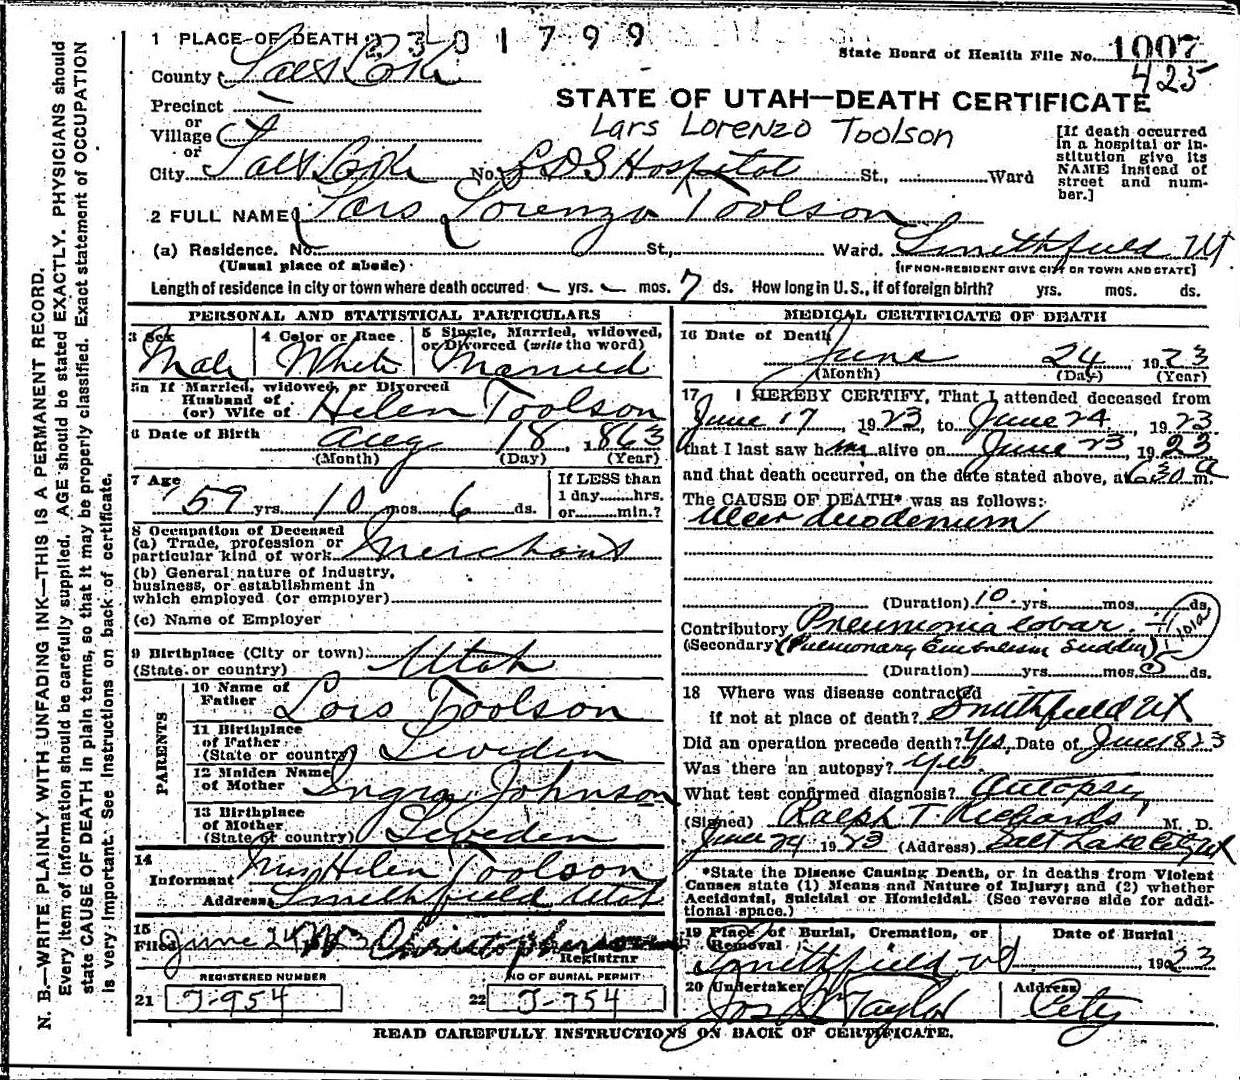 1 PLACE OF DEATH 2301799
State Board of Health File No. 1007
425
County Salt Lake
STATE OF UTAH—DEATH CERTIFICATE
Precinct
or
Village
or
Lars Lorenzo Toolson
[If death occurred in a hospital or institution give its NAME instead of street and number.]
City Salt Lake No. LDS Hospital St., Ward
2 FULL NAME Lars Lorenzo Toolson
(a) Residence. No. St., Ward. Smithfield Ut
(Usual place of abode) [IF NON-RESIDENT GIVE CITY OR TOWN AND STATE]
Length of residence in city or town where death occured - yrs. - mos. 7 ds. How long in U.S., if of foreign birth? yrs. mos. ds.
PERSONAL AND STATISTICAL PARTICULARS
3 Sex Male
4 Color or Race White
5 Single, Married, widowed, or Divorced (write the word) Married
5a If Married, widowed, or Divorced
Husband of
(or) Wife of Helen Toolson
6 Date of Birth Aug 18, 1863
(Month) (Day) (Year)
7 Age 59 yrs. 10 mos. 6 ds.
If LESS than
1 day hrs.
or min.?
8 Occupation of Deceased
(a) Trade, profession or
particular kind of work Merchant
(b) General nature of industry,
business, or establishment in
which employed (or employer)
(c) Name of Employer
9 Birthplace (City or town)
(State or country) Utah
PARENTS
10 Name of Father Lars Toolson
11 Birthplace of Father (State or country) Sweden
12 Maiden Name of Mother Ingra Johnson
13 Birthplace of Mother (State or country) Sweden
14
Informant Mrs Helen Toolson
Address Smithfield Utah
15
Filed June 24 23 Christopherson
Registrar
REGISTERED NUMBER
NO OF BURIAL PERMIT
21 J-954
22 J-754
MEDICAL CERTIFICATE OF DEATH
16 Date of Death
June 24, 1923
(Month) (Day) (Year)
17 I HEREBY CERTIFY, That I attended deceased from
June 17, 1923, to June 24, 1923
that I last saw him alive on June 23, 1923
and that death occurred, on the date stated above, at 630 a m.
The CAUSE OF DEATH* was as follows:
Ulcer duodenum
(Duration) 10 yrs. mos. ds.
Contributory Pneumonia lobar.
(Secondary) (Pulmonary Embolism Sudden)
101a
(Duration) yrs. mos. 5 ds.
18 Where was disease contracted
if not at place of death? Smithfield Ut
Did an operation precede death? Yes, Date of June 18 23
Was there an autopsy? Yes
What test confirmed diagnosis? Autopsy
(Signed) Ralph T. Richards M. D.
June 24 1923 (Address) Salt Lake City, Ut
*State the Disease Causing Death, or in deaths from Violent
Causes state (1) Means and Nature of Injury; and (2) whether
Accidental, Suicidal or Homicidal. (See reverse side for addi-
tional space.)
19 Place of Burial, Cremation, or Removal
Date of Burial
Smithfield Ut , 1923
20 Undertaker Jos Wm Taylor
Address City
READ CAREFULLY INSTRUCTIONS ON BACK OF CERTIFICATE.
N. B.—WRITE PLAINLY WITH UNFADING INK—THIS IS A PERMANENT RECORD.
Every item of information should be carefully supplied. AGE should be stated EXACTLY. PHYSICIANS should
state CAUSE OF DEATH in plain terms, so that it may be properly classified. Exact statement of OCCUPATION
is very important. See instructions on back of certificate.